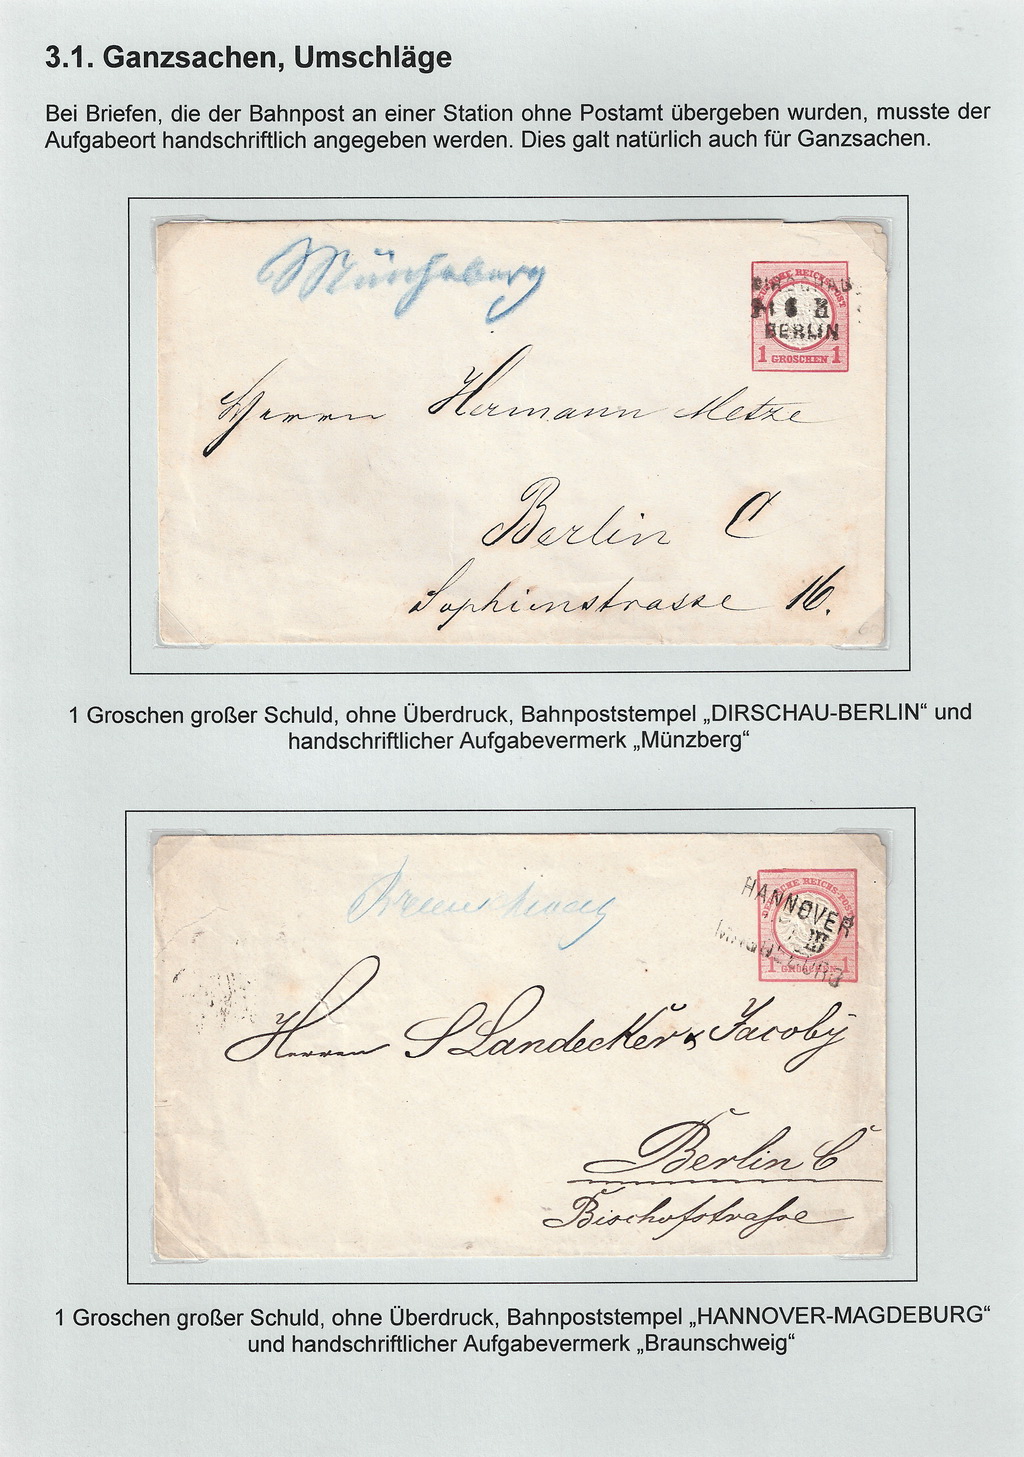 3.1. Ganzsachen, Umschläge
Bei Briefen, die der Bahnpost an einer Station ohne Postamt übergeben wurden, musste der
Aufgabeort handschriftlich angegeben werden. Dies galt natürlich auch für Ganzsachen.
Müncheberg
DEUTSCHE REICHS-POST
DIRSCHAU
6 II
BERLIN
1 GROSCHEN 1
Herrn Hermann Metze
Berlin C
Sophienstrasse 16.
1 Groschen großer Schuld, ohne Überdruck, Bahnpoststempel „DIRSCHAU-BERLIN“ und
handschriftlicher Aufgabevermerk „Münzberg“
Braunschweig
DEUTSCHE REICHS-POST
HANNOVER
III
MAGDEBURG
1 GROSCHEN 1
Herren S Landecker & Jacoby
Berlin C
Bischofstraße
1 Groschen großer Schuld, ohne Überdruck, Bahnpoststempel „HANNOVER-MAGDEBURG“
und handschriftlicher Aufgabevermerk „Braunschweig“